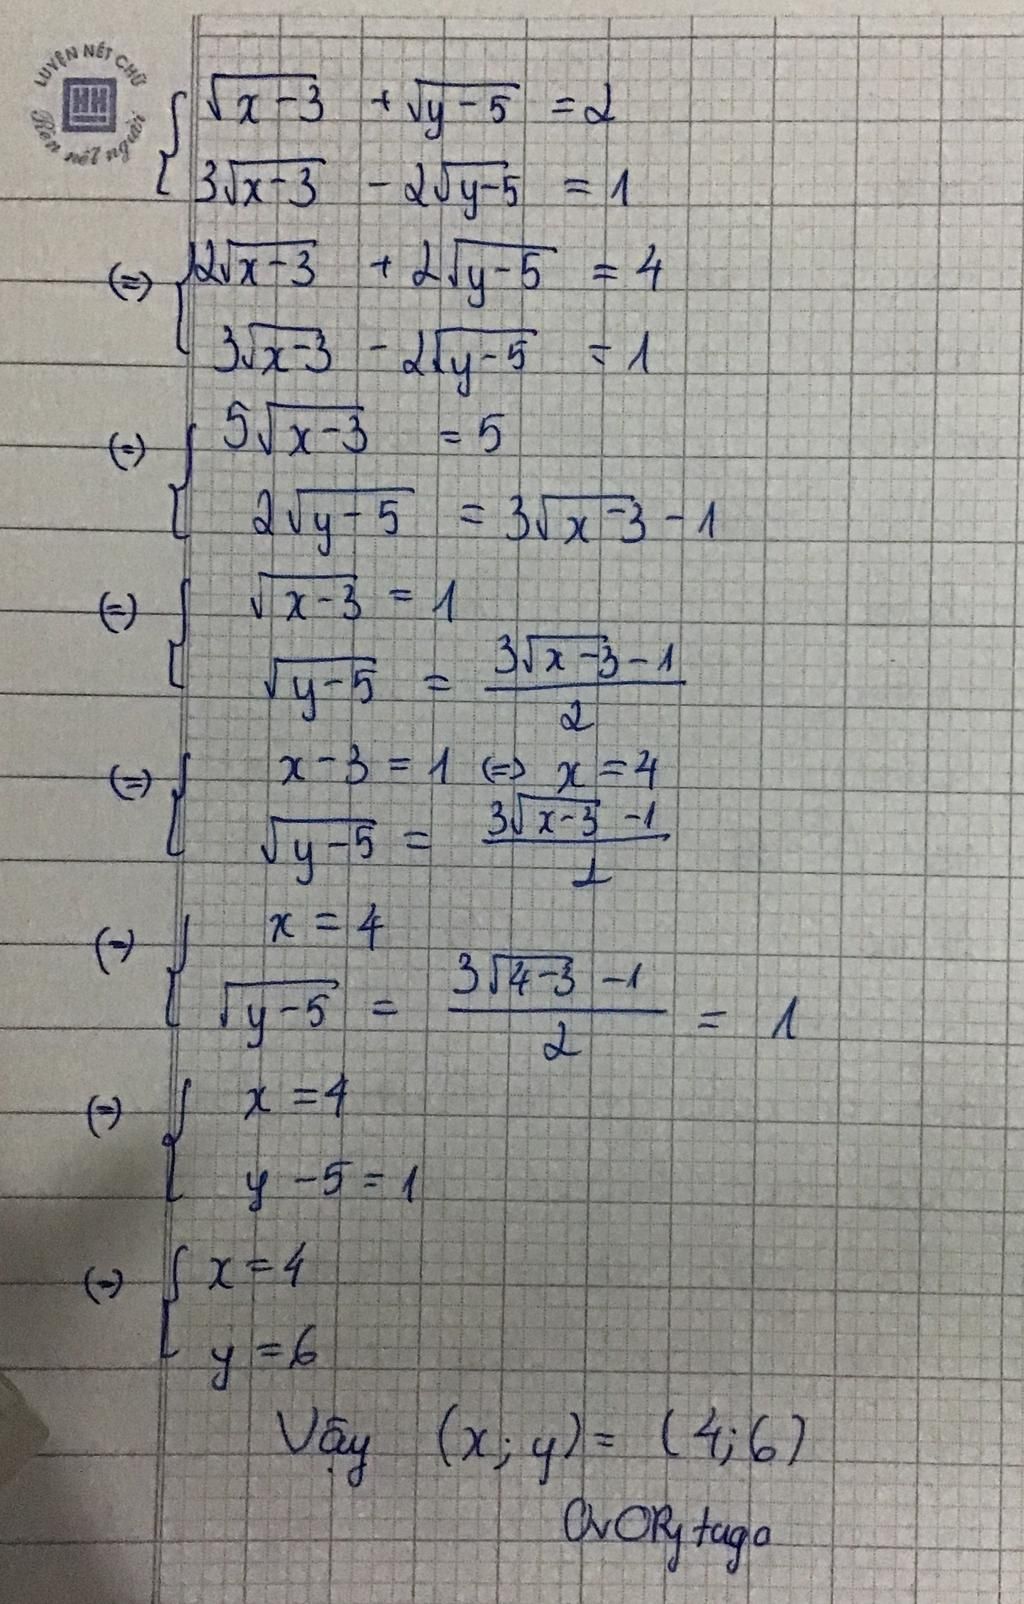 LUYỆN NÉT CHỮ
HH
Rèn nết người
{ √(x-3) + √(y-5) = 2
3√(x-3) - 2√(y-5) = 1
(=) { 2√(x-3) + 2√(y-5) = 4
3√(x-3) - 2√(y-5) = 1
(=) { 5√(x-3) = 5
2√(y-5) = 3√(x-3) - 1
(=) { √(x-3) = 1
√(y-5) = (3√(x-3) - 1)/2
(=) { x-3 = 1 (=) x = 4
√(y-5) = (3√(x-3) - 1)/2
(=) { x = 4
√(y-5) = (3√(4-3) - 1)/2 = 1
(=) { x = 4
y - 5 = 1
(=) { x = 4
y = 6
Vậy (x; y) = (4; 6)